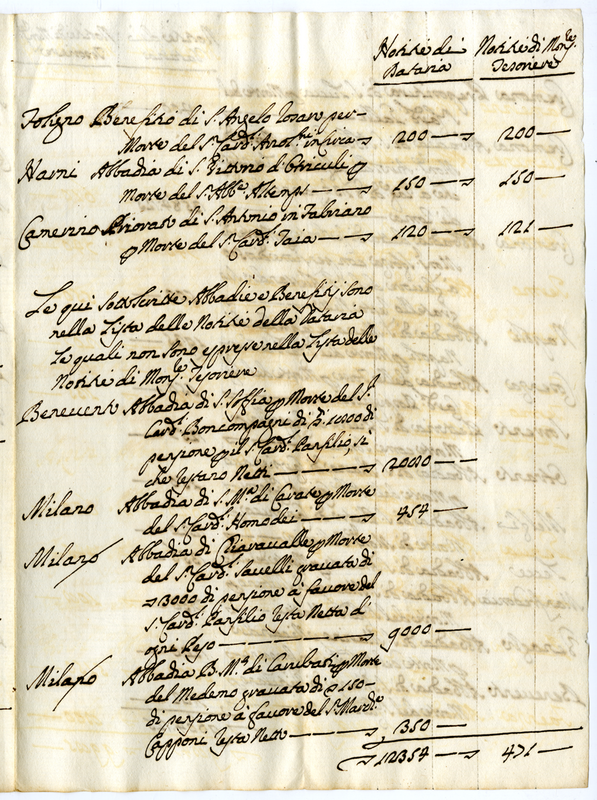 Notitie di Notitie di Mons.re
Dataria Tesoriere
Foligno Benefitio di S. Angelo per
Morte del S.r Card. in circa ϶ 200 — ϶ 200 —
Narni Abbadia di S. Vittorio d'Otriculi p
Morte del S.r Abb.e Altemps — ϶ 150 — ϶ 150 —
Camerino Priorato di S. Antonio in Fabriano
p Morte del S.r Card. Taia — ϶ 120 — ϶ 121 —
Le qui sottoscritte Abbadie e Benefitij sono
nella Lista delle Notitie della Dataria
Le quali non sono espresse nella Lista delle
Notitie di Mons.re Tesoriere
Benevento Abbadia di S. Soffia p Morte del S.r
Card. Boncompagni di di
pensione p il S.r Card. Panfilio, si
che restano Netti — ϶ —
Milano Abbadia di S. M.a di Civate p Morte
del S.r Card. Homodei — ϶ 454 —
Milano Abbadia di Chiaravalle p Morte
del S.r Card. Savelli gravata di
϶ 3000 di pensione à favore del
S.r Card. Panfilio resta Netta d'
ogni Peso — ϶ 9000 —
Milano Abbadia B. M.a di p Morte
del Medemo gravata di ϶ 150 —
di pensione à favore del S.r March.e
Capponi resta Netto — ϶ 350 —
϶ 12354 — ϶ 471 —